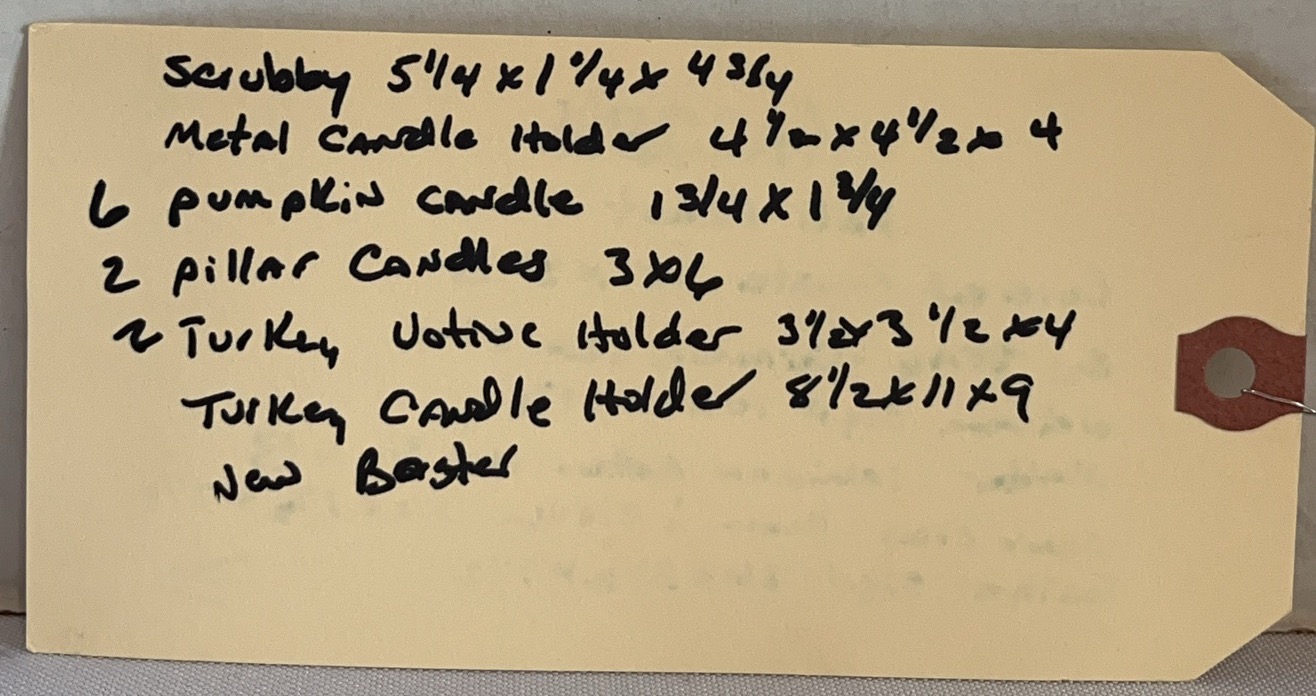 Scrubby 5 1/4 x 1 1/4 x 4 3/4
Metal Candle Holder 4 1/2 x 4 1/2 x 4
6 pumpkin candle 1 3/4 x 1 3/4
2 pillar Candles 3 x 6
2 Turkey Votive Holder 3 1/2 x 3 1/2 x 4
Turkey Candle Holder 8 1/2 x 11 x 9
New Baster